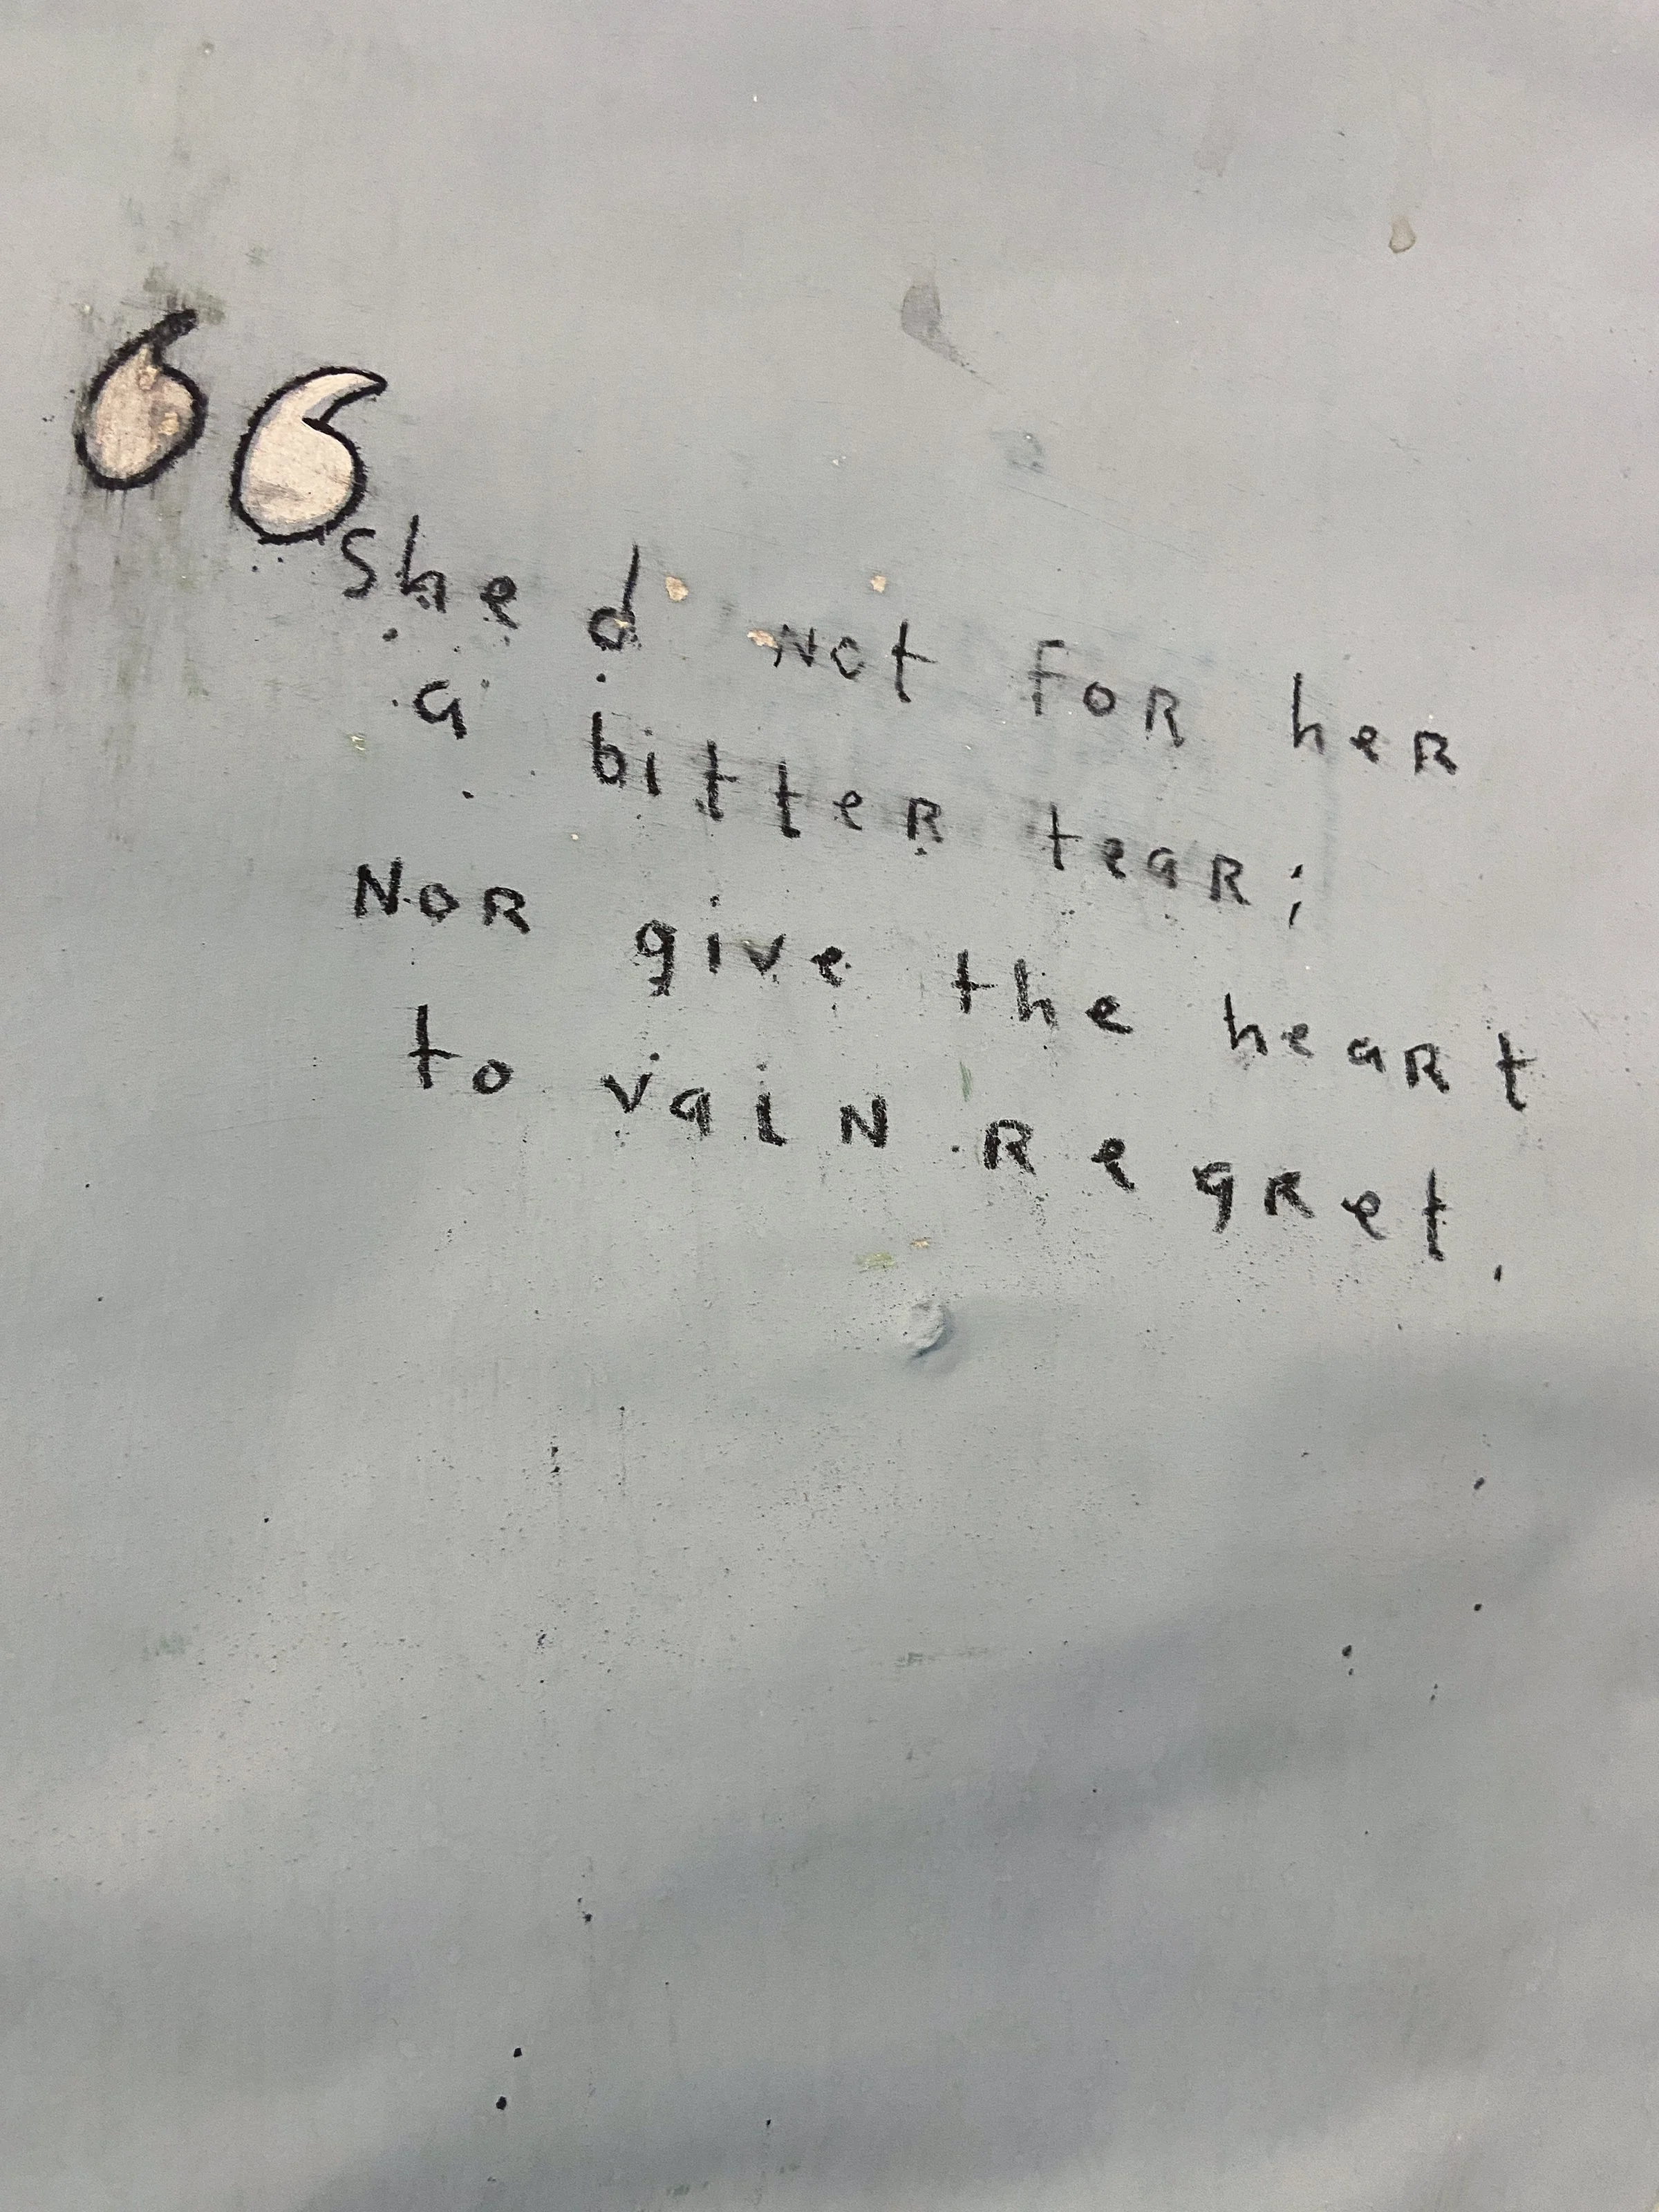 “Shed not for her
a bitter tear;
Nor give the heart
to vain regret.